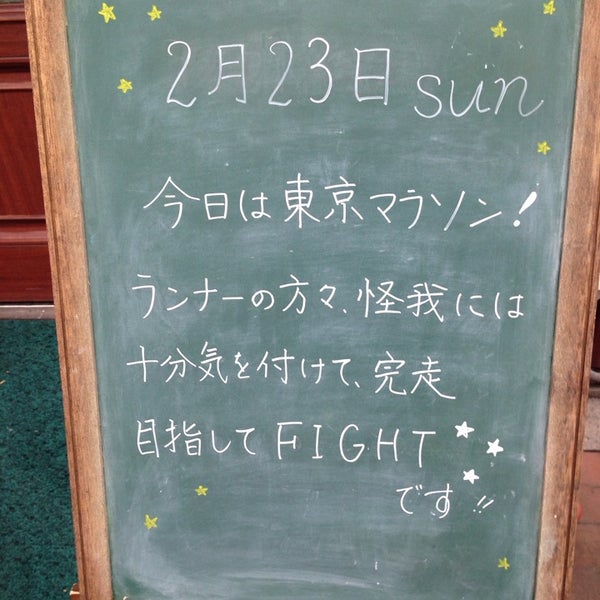 2月23日 sun
今日は東京マラソン!
ランナーの方々、怪我には
十分気を付けて、完走
目指してFIGHT
です!!